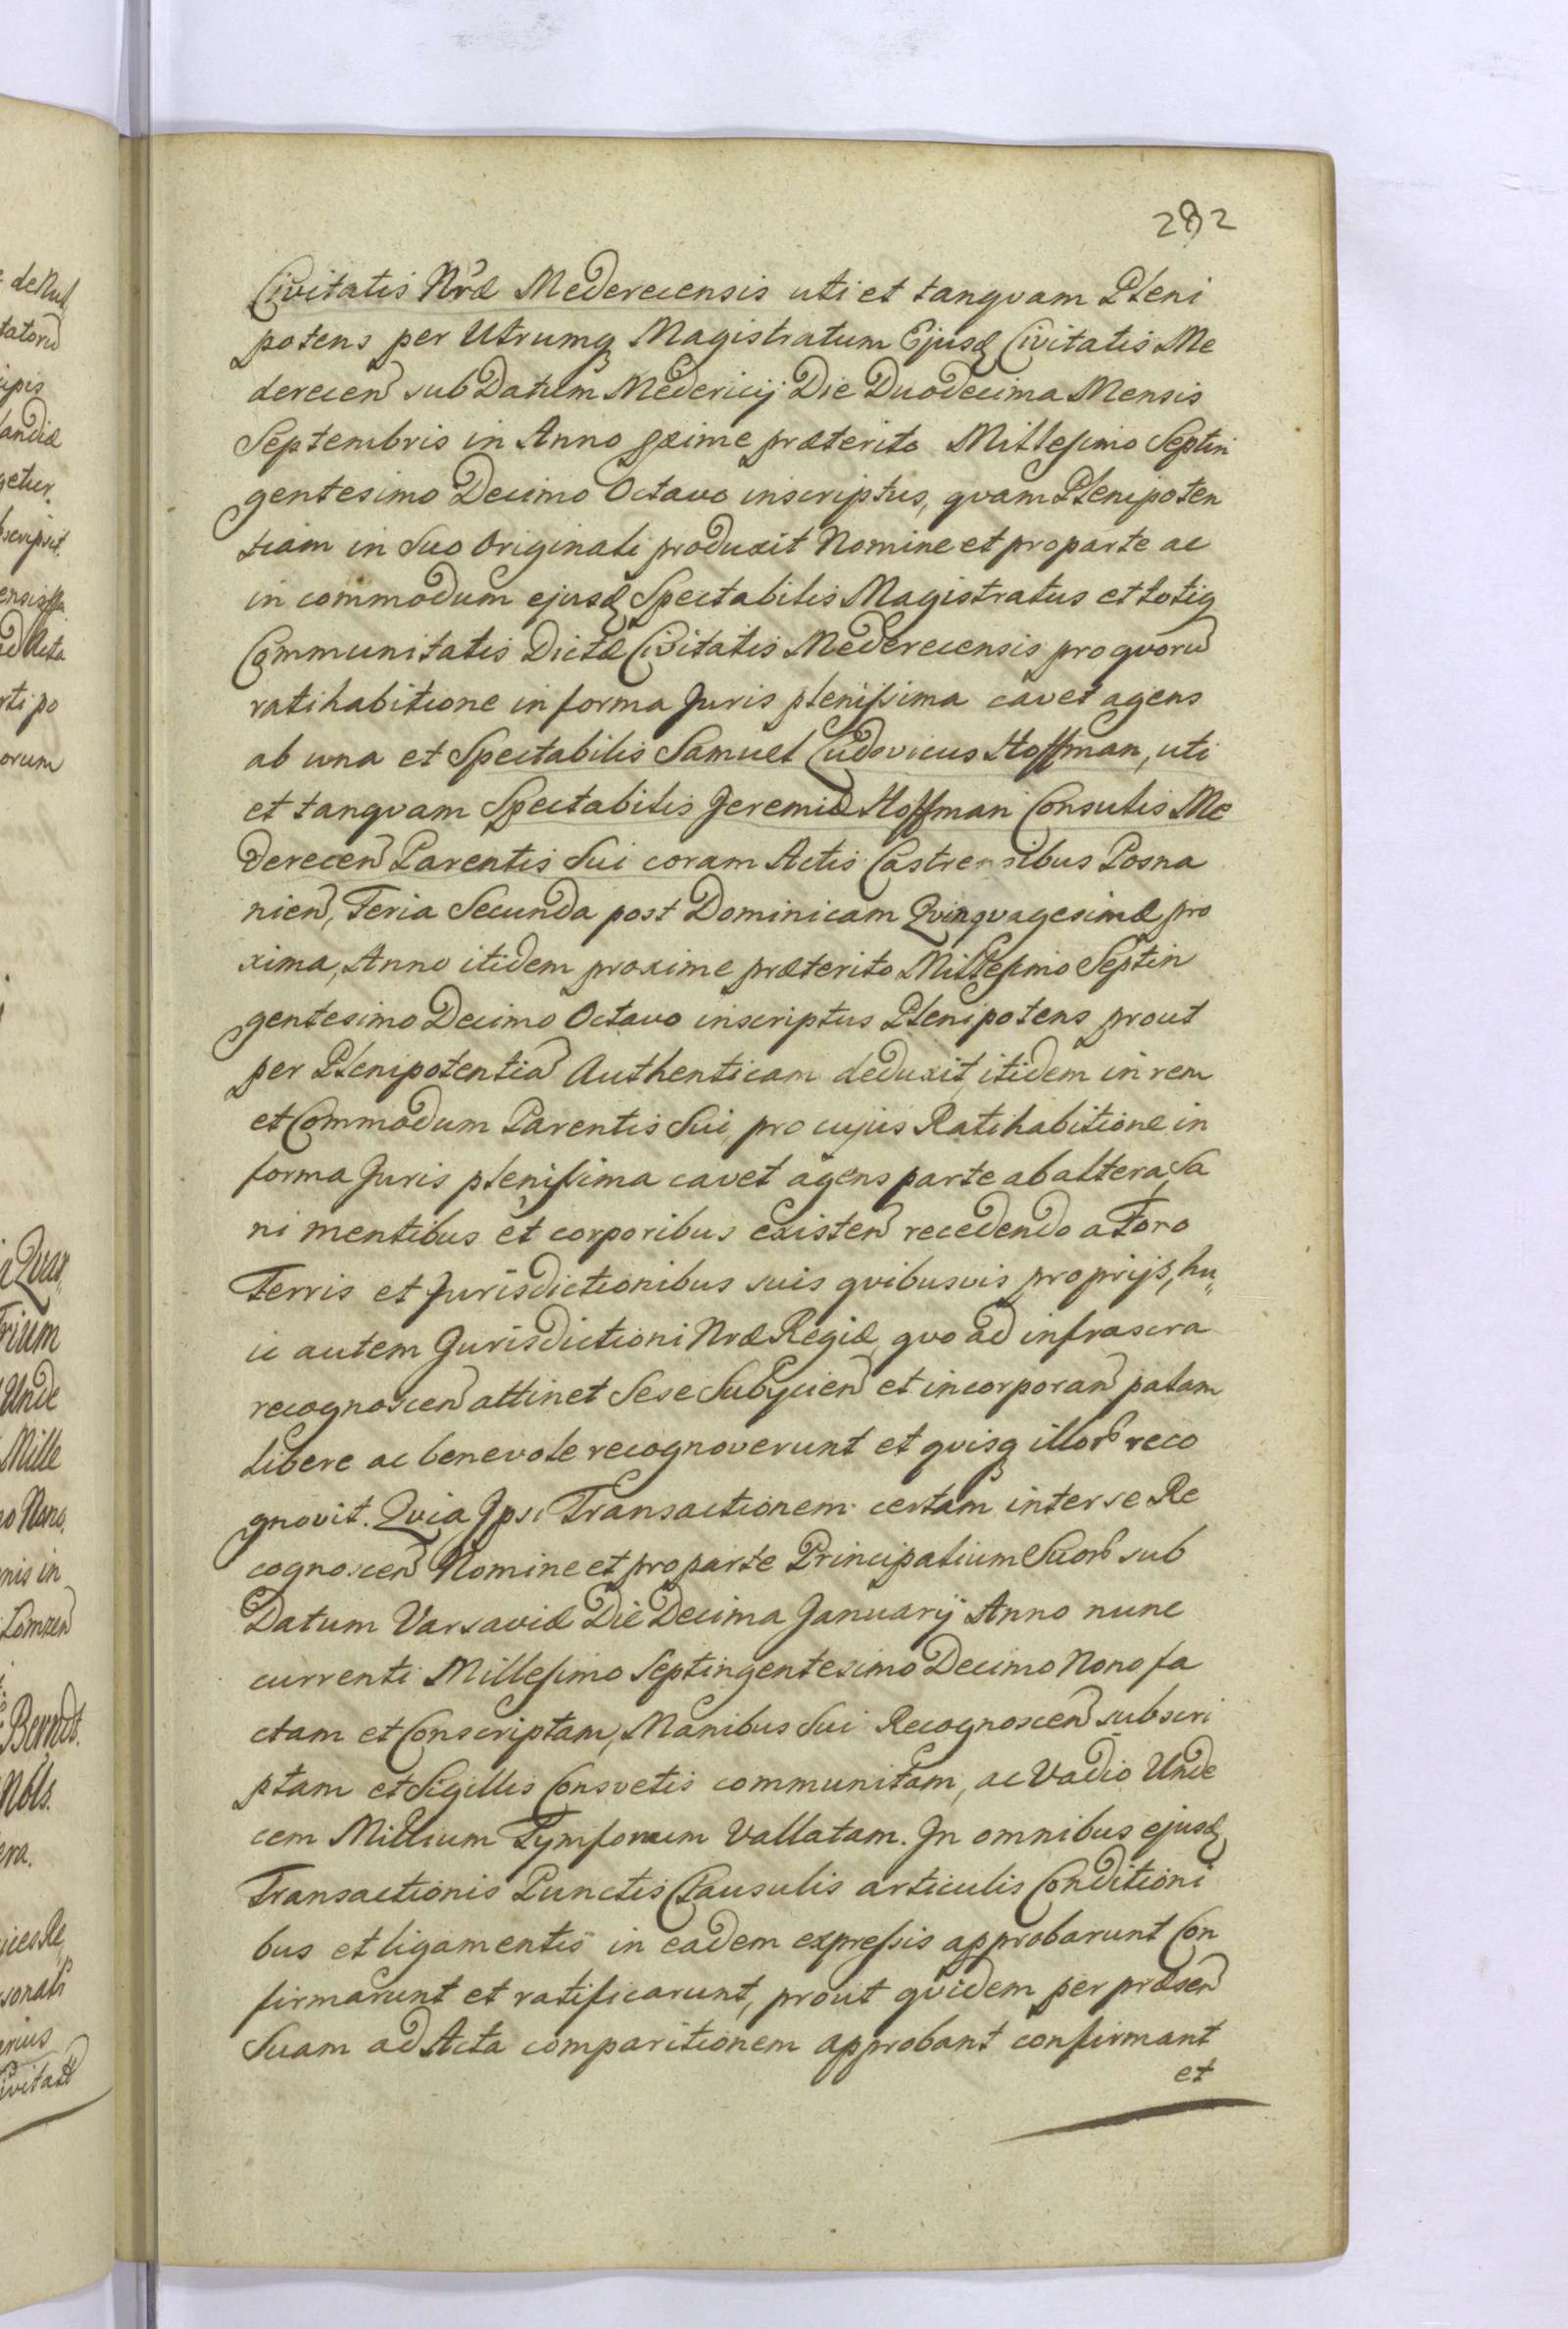 282
Civitatis Nræ Mederecensis uti et tanqvam Pleni
potens per Utrumq Magistratum Ejusd Civitatis Me
derecen sub Datum Medericij Die Duodecima Mensis
Septembris in Anno pxime præterito Millesimo Septin
gentesimo Decimo Octavo inscriptus, qvam Plenipoten
tiam in Suo Originali produxit Nomine et pro parte ac
in commodum ejusd Spectabilis Magistratus et totiq
Communitatis Dictæ Civitatis Mederecensis pro qvoru
ratihabitione in forma Juris plenissima cavet agens
ab una et Spectabilis Samuel Ludovicus Hoffman, uti
et tanqvam Spectabilis Jeremiæ Hoffman Consulis Me
derecen Parentis Sui coram Actis Castrensibus Posna
nien, Feria Secunda post Dominicam Qvinqvagesimæ pro
xima, Anno itidem proxime præterito Millesimo Septin
gentesimo Decimo Octavo inscriptus Plenipotens prout
per Plenipotentia Authenticam deduxit, itidem in rem
et Commodum Parentis Sui, pro cujus Ratihabitione in
forma Juris plenissima cavet agens parte ab altera, Sa
ni mentibus et corporibus existen recedendo a Foro
Terris et Jurisdictionibus suis qvibusvis proprijs, hu„
ic autem Jurisdictioni Nræ Regiæ, qvo ad infrascra
recognoscen attinet Sese Subycien et incorporan palam
Libere ac benevole recognoverunt et qvisq illor reco
gnovit. Qvia Ipsi Transactionem certam inter se Re
cognoscen Nomine et pro parte Principalium Suor sub
Datum Varsaviæ Die Decima Januarij Anno nunc
currenti Millesimo Septingentesimo Decimo Nono fa
ctam et Conscriptam, Manibus Sui Recognoscen subscri
ptam et Sigillis Consvetis communitam, ac Vadio Unde
cem Millium Tymforum Vallatam. In omnibus ejusd
Transactionis Punctis Clausulis articulis Conditioni
bus et ligamentis in eadem expressis approbarunt Con
firmarunt et ratificarunt, prout qvidem per præsen
Suam ad Acta comparitionem approbant confirmant
et